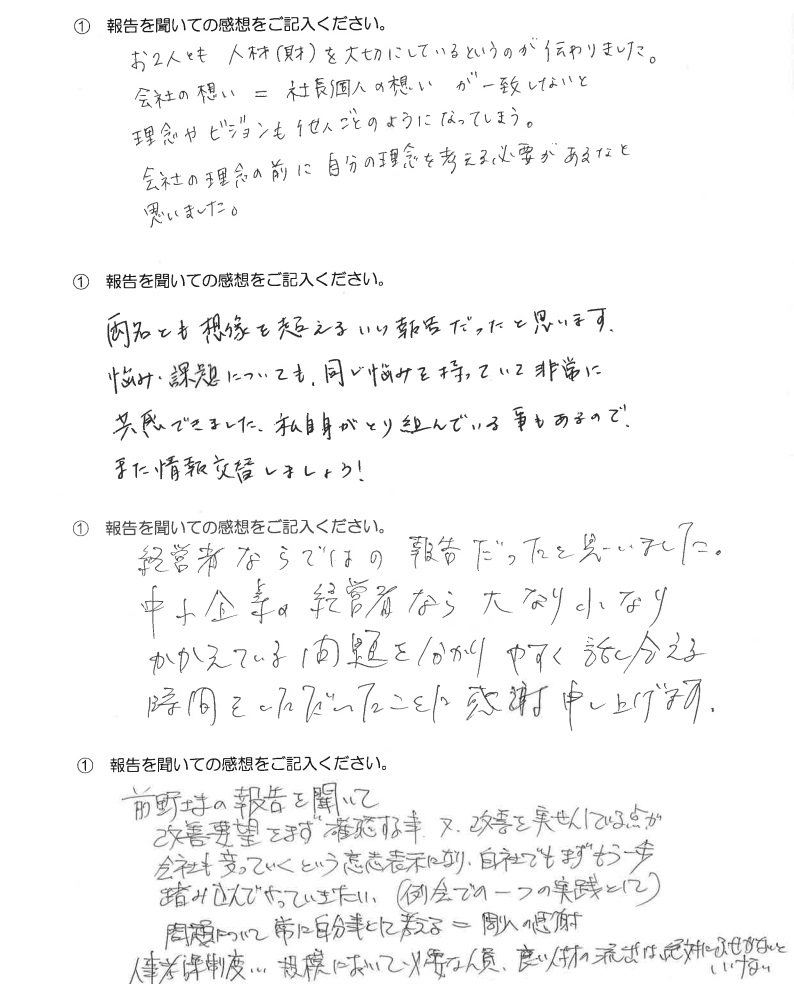 ① 報告を聞いての感想をご記入ください。
お2人とも 人材(財)を大切にしているというのが伝わりました。
会社の想い = 社長個人の想い が一致しないと
理念やビジョンも他人ごとのようになってしまう。
会社の理念の前に自分の理念を考える必要があるなと
思いました。
① 報告を聞いての感想をご記入ください。
両名とも想像を超えるいい報告だったと思います。
悩み・課題についても、同じ悩みを持っていて非常に
共感できました、私自身がとり組んでいる事もあるので、
また情報交替しましょう!
① 報告を聞いての感想をご記入ください。
経営者ならではの報告だったと思いました。
中小企業の経営者なら大なり小なり
かかえている問題を分かりやすく話し合える
時間をいただいたことに感謝申し上げます。
① 報告を聞いての感想をご記入ください。
前野さまの報告を聞いて
改善要望をまず確認する事 又、改善を実せんしている点が
会社も変っていくという意志表示になり、自社でもまずもう一歩
踏み込んでやっていきたい、(例会での一つの実践として)
問題について常に自分事として考える = 周りへの感謝
人事考課制度… 規模において必要な人員、良い人材の流出は絶対にふせがないと
いけない